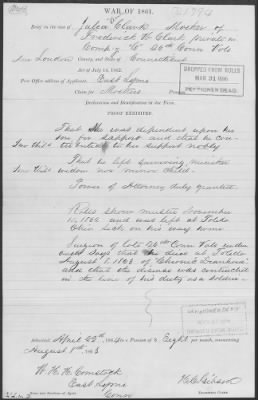 WAR OF 1861.
Brief in the case of Julia Clark Mother of
Frederick W. Clark private in
Company "C" 26th Conn Vols
New London County, and State of Connecticut
Act of July 14, 1862.
Post Office address of Applicant, East Lyme
Claim for Mother's Pension.
DROPPED FROM ROLLS
MAR 31 1886
PENSIONER DEAD.
Declaration and Identification in due Form.
PROOF EXHIBITED.
That she was dependent upon her
son for support and that he con-
tributed to her support
That he left surviving, neither
widow nor minor child.
Power of Attorney duly granted.
Rolls show muster November
10, 1862 and was left at Toledo
Ohio sick on his way home
Surgeon of late 26th Conn Vols under
oath says that he died at Toledo
August 1, 1863 of "Chronic Diarrhoea"
and that the disease was contracted
in the line of his duty as a soldier
Admitted April 22nd, 186 , to a Pension of $ Eight per month, commencing
August 1st 1863
W. H. H. Comstock
East Lyme
Conn
Examining Clerk.